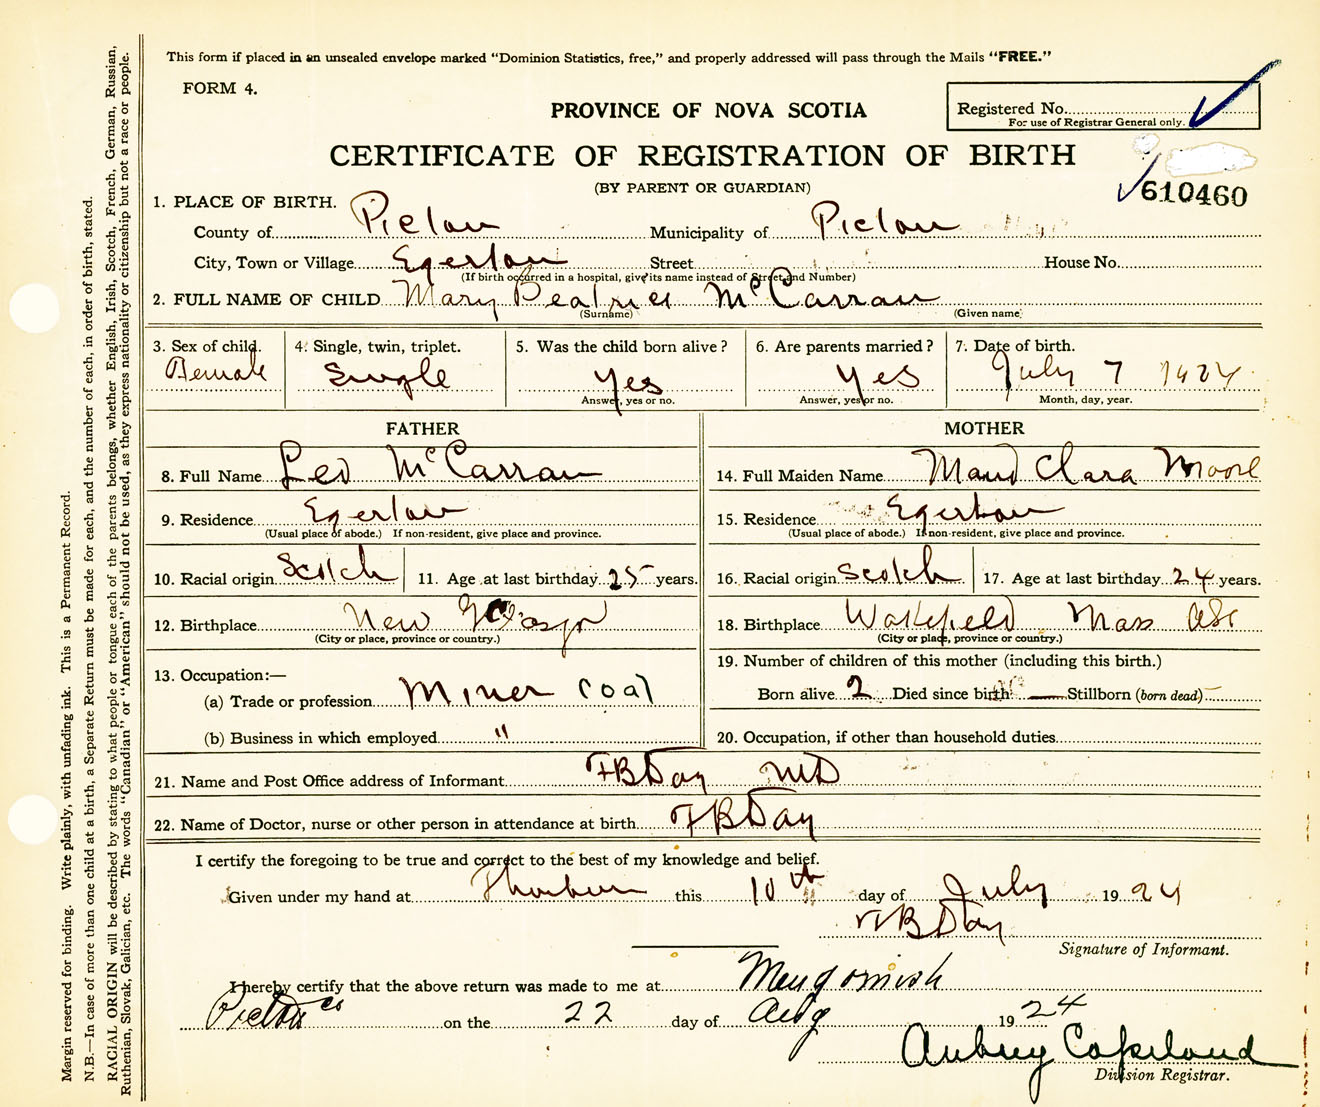 This form if placed in an unsealed envelope marked "Dominion Statistics, free," and properly addressed will pass through the Mails "FREE."
FORM 4.
PROVINCE OF NOVA SCOTIA
Registered No.
For use of Registrar General only.
CERTIFICATE OF REGISTRATION OF BIRTH
(BY PARENT OR GUARDIAN)
610460
1. PLACE OF BIRTH.
County of Pictou Municipality of Pictou
City, Town or Village Egerton Street House No.
(If birth occurred in a hospital, give its name instead of Street and Number)
2. FULL NAME OF CHILD Mary Beatrice McCarran
(Surname) (Given name)
3. Sex of child. 4. Single, twin, triplet. 5. Was the child born alive? 6. Are parents married? 7. Date of birth.
Female Single Yes Yes July 7 1924
Answer, yes or no. Answer, yes or no. Month, day, year.
FATHER MOTHER
8. Full Name Leo McCarran 14. Full Maiden Name Maud Clara Moore
9. Residence Egerton 15. Residence Egerton
(Usual place of abode.) If non-resident, give place and province. (Usual place of abode.) If non-resident, give place and province.
10. Racial origin Scotch 11. Age at last birthday 25 years. 16. Racial origin Scotch 17. Age at last birthday 24 years.
12. Birthplace New Glasgo 18. Birthplace Wakefield Mass
(City or place, province or country.) (City or place, province or country.)
13. Occupation:— 19. Number of children of this mother (including this birth.)
(a) Trade or profession Miner coal Born alive 2 Died since birth — Stillborn (born dead) -
(b) Business in which employed " 20. Occupation, if other than household duties
21. Name and Post Office address of Informant F B Day MD
22. Name of Doctor, nurse or other person in attendance at birth F B Day
I certify the foregoing to be true and correct to the best of my knowledge and belief.
Given under my hand at Thorburn this 10th day of July 1924
F B Day
Signature of Informant.
I hereby certify that the above return was made to me at Merigomish
Pictou Co on the 22 day of Aug 1924
Aubrey Copeland
Division Registrar.
Margin reserved for binding. Write plainly, with unfading ink. This is a Permanent Record.
N.B.—In case of more than one child at a birth, a Separate Return must be made for each, and the number of each, in order of birth, stated.
RACIAL ORIGIN will be described by stating to what people or tongue each of the parents belongs, whether English, Irish, Scotch, French, German, Russian,
Ruthenian, Slovak, Galician, etc. The words "Canadian" or "American" should not be used, as they express nationality or citizenship but not a race or people.